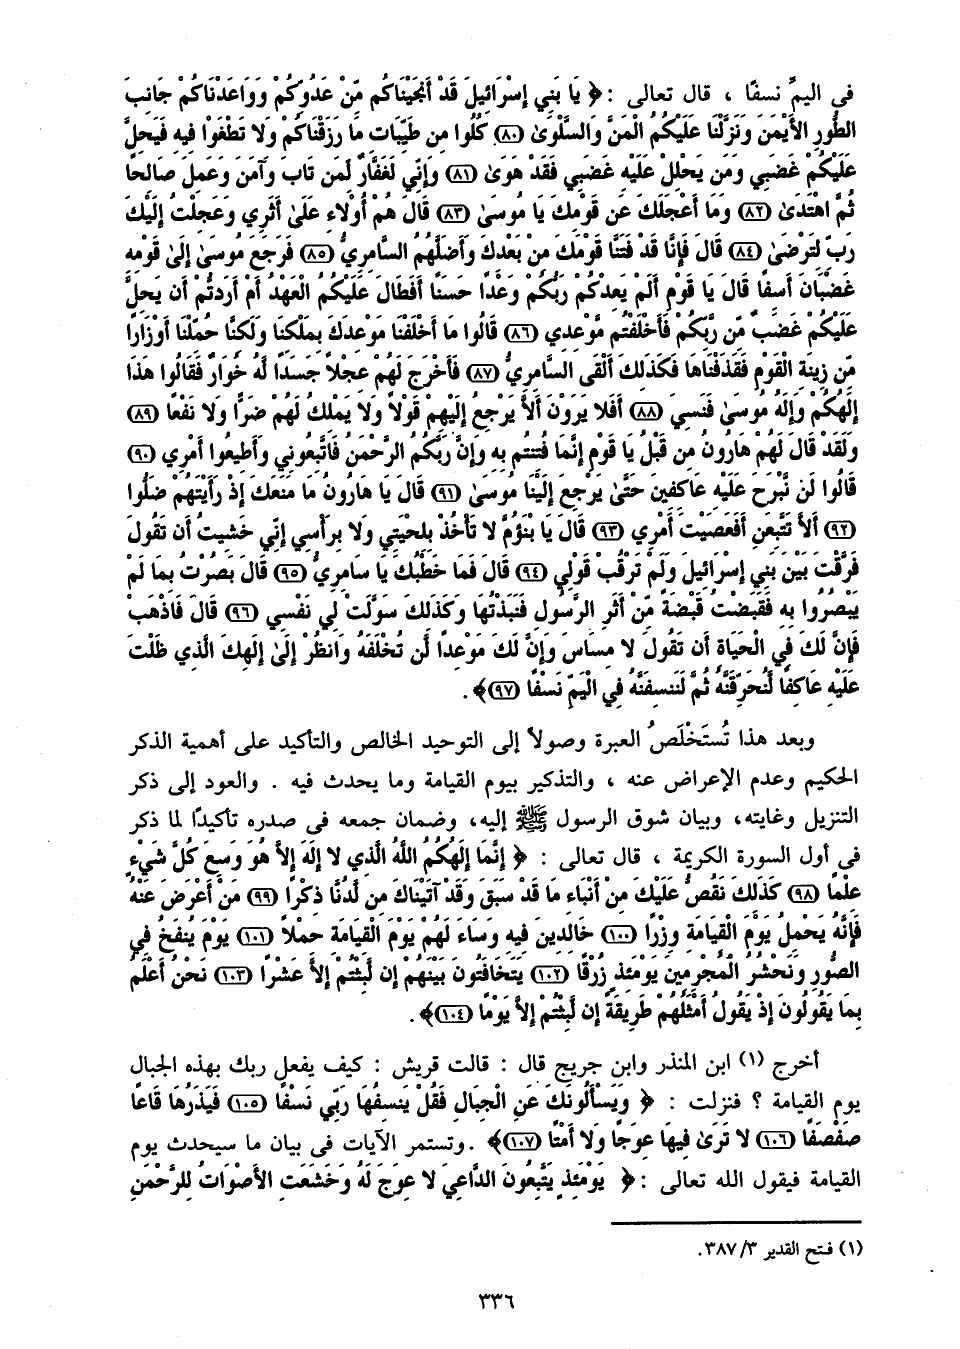 فى اليمِّ نسفًا ، قال تعالى :﴿ يَا بَنِي إِسْرَائِيلَ قَدْ أَنجَيْنَاكُم مِّنْ عَدُوِّكُمْ وَوَاعَدْنَاكُمْ جَانِبَ
الطُّورِ الأَيْمَنَ وَنَزَّلْنَا عَلَيْكُمُ الْمَنَّ وَالسَّلْوَىٰ (٨٠) كُلُوا مِن طَيِّبَاتِ مَا رَزَقْنَاكُمْ وَلا تَطْغَوْا فِيهِ فَيَحِلَّ
عَلَيْكُمْ غَضَبِي وَمَن يَحْلِلْ عَلَيْهِ غَضَبِي فَقَدْ هَوَىٰ (٨١) وَإِنِّي لَغَفَّارٌ لِّمَن تَابَ وَآمَنَ وَعَمِلَ صَالِحًا
ثُمَّ اهْتَدَىٰ (٨٢) وَمَا أَعْجَلَكَ عَن قَوْمِكَ يَا مُوسَىٰ (٨٣) قَالَ هُمْ أُولَاءِ عَلَىٰ أَثَرِي وَعَجِلْتُ إِلَيْكَ
رَبِّ لِتَرْضَىٰ (٨٤) قَالَ فَإِنَّا قَدْ فَتَنَّا قَوْمَكَ مِنْ بَعْدِكَ وَأَضَلَّهُمُ السَّامِرِيُّ (٨٥) فَرَجَعَ مُوسَىٰ إِلَىٰ قَوْمِهِ
غَضْبَانَ أَسِفًا قَالَ يَا قَوْمِ أَلَمْ يَعِدْكُمْ رَبُّكُمْ وَعْدًا حَسَنًا أَفَطَالَ عَلَيْكُمُ الْعَهْدُ أَمْ أَرَدتُّمْ أَن يَحِلَّ
عَلَيْكُمْ غَضَبٌ مِّن رَّبِّكُمْ فَأَخْلَفْتُم مَّوْعِدِي (٨٦) قَالُوا مَا أَخْلَفْنَا مَوْعِدَكَ بِمَلْكِنَا وَلَكِنَّا حُمِّلْنَا أَوْزَارًا
مِّن زِينَةِ الْقَوْمِ فَقَذَفْنَاهَا فَكَذَلِكَ أَلْقَى السَّامِرِيُّ (٨٧) فَأَخْرَجَ لَهُمْ عِجْلاً جَسَدًا لَّهُ خُوَارٌ فَقَالُوا هَذَا
إِلَهُكُمْ وَإِلَهُ مُوسَىٰ فَنَسِيَ (٨٨) أَفَلا يَرَوْنَ أَلاَّ يَرْجِعُ إِلَيْهِمْ قَوْلاً وَلا يَمْلِكُ لَهُمْ ضَرًّا وَلا نَفْعًا (٨٩)
وَلَقَدْ قَالَ لَهُمْ هَارُونُ مِن قَبْلُ يَا قَوْمِ إِنَّمَا فُتِنتُم بِهِ وَإِنَّ رَبَّكُمُ الرَّحْمَنُ فَاتَّبِعُونِي وَأَطِيعُوا أَمْرِي (٩٠)
قَالُوا لَن نَّبْرَحَ عَلَيْهِ عَاكِفِينَ حَتَّىٰ يَرْجِعَ إِلَيْنَا مُوسَىٰ (٩١) قَالَ يَا هَارُونُ مَا مَنَعَكَ إِذْ رَأَيْتَهُمْ ضَلُّوا
(٩٢) أَلاَّ تَتَّبِعَنِ أَفَعَصَيْتَ أَمْرِي (٩٣) قَالَ يَا بْنَؤُمَّ لا تَأْخُذْ بِلِحْيَتِي وَلا بِرَأْسِي إِنِّي خَشِيتُ أَن تَقُولَ
فَرَّقْتَ بَيْنَ بَنِي إِسْرَائِيلَ وَلَمْ تَرْقُبْ قَوْلِي (٩٤) قَالَ فَمَا خَطْبُكَ يَا سَامِرِيُّ (٩٥) قَالَ بَصُرْتُ بِمَا لَمْ
يَبْصُرُوا بِهِ فَقَبَضْتُ قَبْضَةً مِّنْ أَثَرِ الرَّسُولِ فَنَبَذْتُهَا وَكَذَلِكَ سَوَّلَتْ لِي نَفْسِي (٩٦) قَالَ فَاذْهَبْ
فَإِنَّ لَكَ فِي الْحَيَاةِ أَن تَقُولَ لا مِسَاسَ وَإِنَّ لَكَ مَوْعِدًا لَّن تُخْلَفَهُ وَانظُرْ إِلَىٰ إِلَهِكَ الَّذِي ظَلْتَ
عَلَيْهِ عَاكِفًا لَّنُحَرِّقَنَّهُ ثُمَّ لَنَنسِفَنَّهُ فِي الْيَمِّ نَسْفًا (٩٧)﴾ .
وبعد هذا تُستَخْلَصُ العبرة وصولاً إلى التوحيد الخالص والتأكيد على أهمية الذكر
الحكيم وعدم الإعراض عنه ، والتذكير بيوم القيامة وما يحدث فيه . والعود إلى ذكر
التنزيل وغايته، وبيان شوق الرسول ﷺ إليه، وضمان جمعه فى صدره تأكيدًا لما ذكر
فى أول السورة الكريمة ، قال تعالى : ﴿ إِنَّمَا إِلَهُكُمُ اللَّهُ الَّذِي لا إِلَهَ إِلاَّ هُوَ وَسِعَ كُلَّ شَيْءٍ
عِلْمًا (٩٨) كَذَلِكَ نَقُصُّ عَلَيْكَ مِنْ أَنْبَاءِ مَا قَدْ سَبَقَ وَقَدْ آتَيْنَاكَ مِن لَّدُنَّا ذِكْرًا (٩٩) مَنْ أَعْرَضَ عَنْهُ
فَإِنَّهُ يَحْمِلُ يَوْمَ الْقِيَامَةِ وِزْرًا (١٠٠) خَالِدِينَ فِيهِ وَسَاءَ لَهُمْ يَوْمَ الْقِيَامَةِ حِمْلاً (١٠١) يَوْمَ يُنفَخُ فِي
الصُّورِ وَنَحْشُرُ الْمُجْرِمِينَ يَوْمَئِذٍ زُرْقًا (١٠٢) يَتَخَافَتُونَ بَيْنَهُمْ إِن لَّبِثْتُمْ إِلاَّ عَشْرًا (١٠٣) نَحْنُ أَعْلَمُ
بِمَا يَقُولُونَ إِذْ يَقُولُ أَمْثَلُهُمْ طَرِيقَةً إِن لَّبِثْتُمْ إِلاَّ يَوْمًا (١٠٤)﴾ .
أخرج (١) ابن المنذر وابن جريج قال : قالت قريش : كيف يفعل ربك بهذه الجبال
يوم القيامة ؟ فنزلت : ﴿ وَيَسْأَلُونَكَ عَنِ الْجِبَالِ فَقُلْ يَنسِفُهَا رَبِّي نَسْفًا (١٠٥) فَيَذَرُهَا قَاعًا
صَفْصَفًا (١٠٦) لا تَرَىٰ فِيهَا عِوَجًا وَلا أَمْتًا (١٠٧)﴾ .وتستمر الآيات فى بيان ما سيحدث يوم
القيامة فيقول الله تعالى :﴿ يَوْمَئِذٍ يَتَّبِعُونَ الدَّاعِيَ لا عِوَجَ لَهُ وَخَشَعَتِ الأَصْوَاتُ لِلرَّحْمَنِ
(١) فتح القدير ٣/ ٣٨٧.
٣٣٦